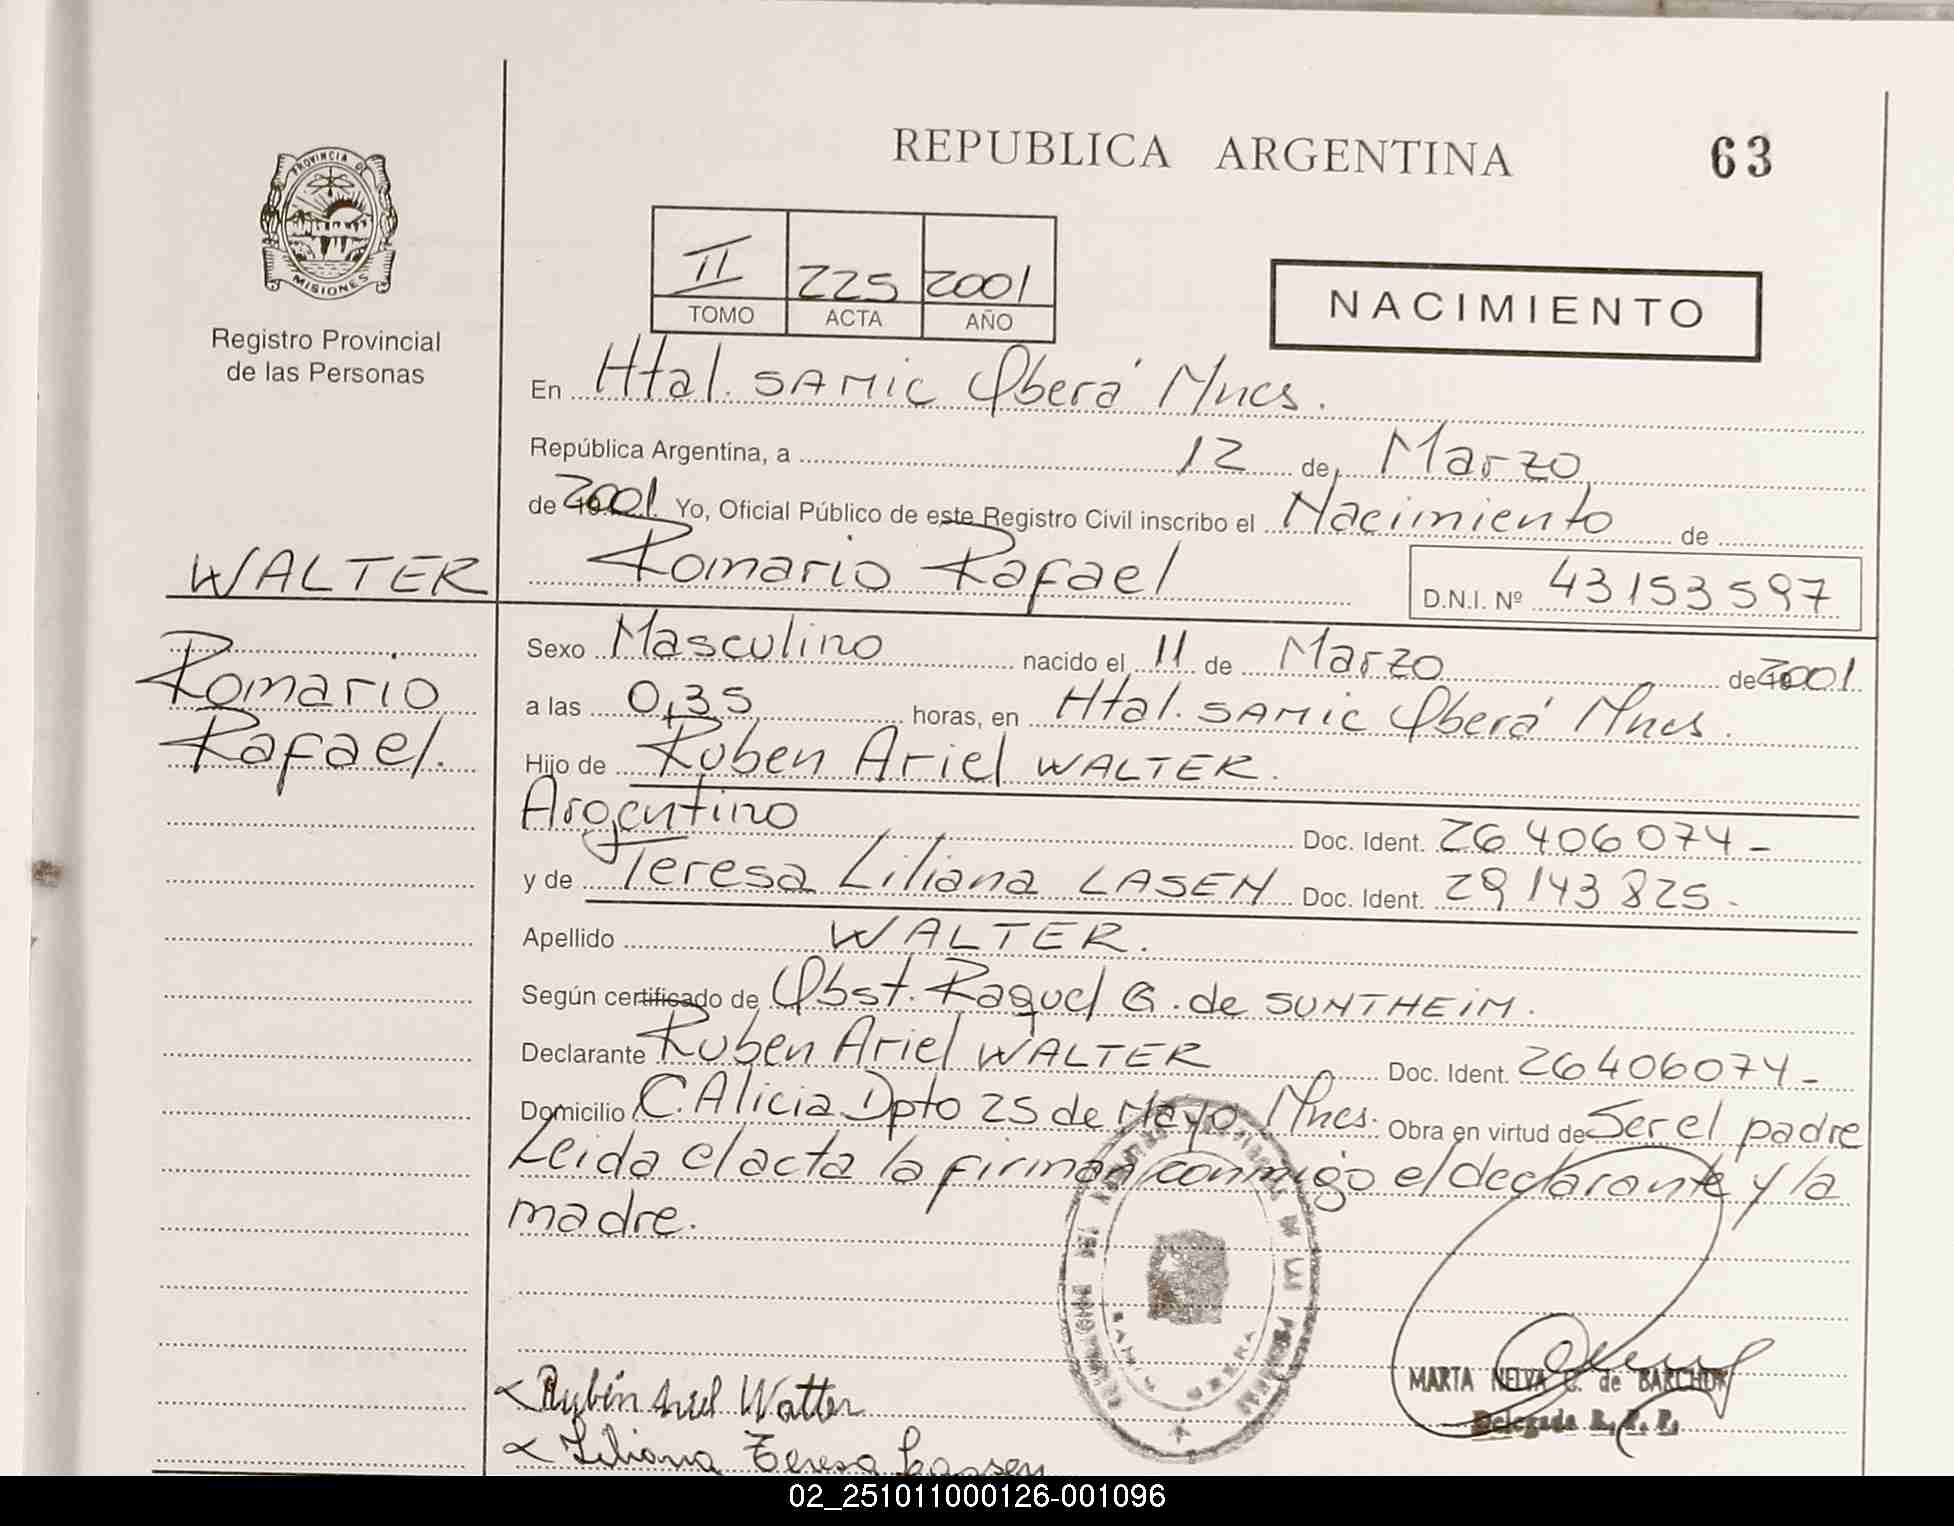 REPUBLICA ARGENTINA
63
PROVINCIA DE
MISIONES
Registro Provincial
de las Personas
II 225 2001
TOMO ACTA AÑO
NACIMIENTO
En Htal. SAMIC Oberá Mnes.
República Argentina, a 12 de Marzo
de 2001 Yo, Oficial Público de este Registro Civil inscribo el Nacimiento de
WALTER
Romario Rafael
D.N.I. Nº 43153597
Romario
Rafael.
Sexo Masculino nacido el 11 de Marzo de 2001
a las 0,35 horas, en Htal. SAMIC Oberá Mnes.
Hijo de Ruben Ariel WALTER.
Argentino Doc. Ident. 26406074-
y de Teresa Liliana LASEN Doc. Ident. 29143825-
Apellido WALTER.
Según certificado de Obst. Raquel G. de SUNTHEIM.
Declarante Ruben Ariel WALTER Doc. Ident. 26406074-
Domicilio C. Alicia Dpto 25 de Mayo Mnes. Obra en virtud de Ser el padre
Leida el acta la firman conmigo el declarante y la
madre.
Rubén Ariel Walter
Liliana Teresa Lassen
MARTA NELVA G. de BARCHUK
Delegada R. P. P.
02_251011000126-001096